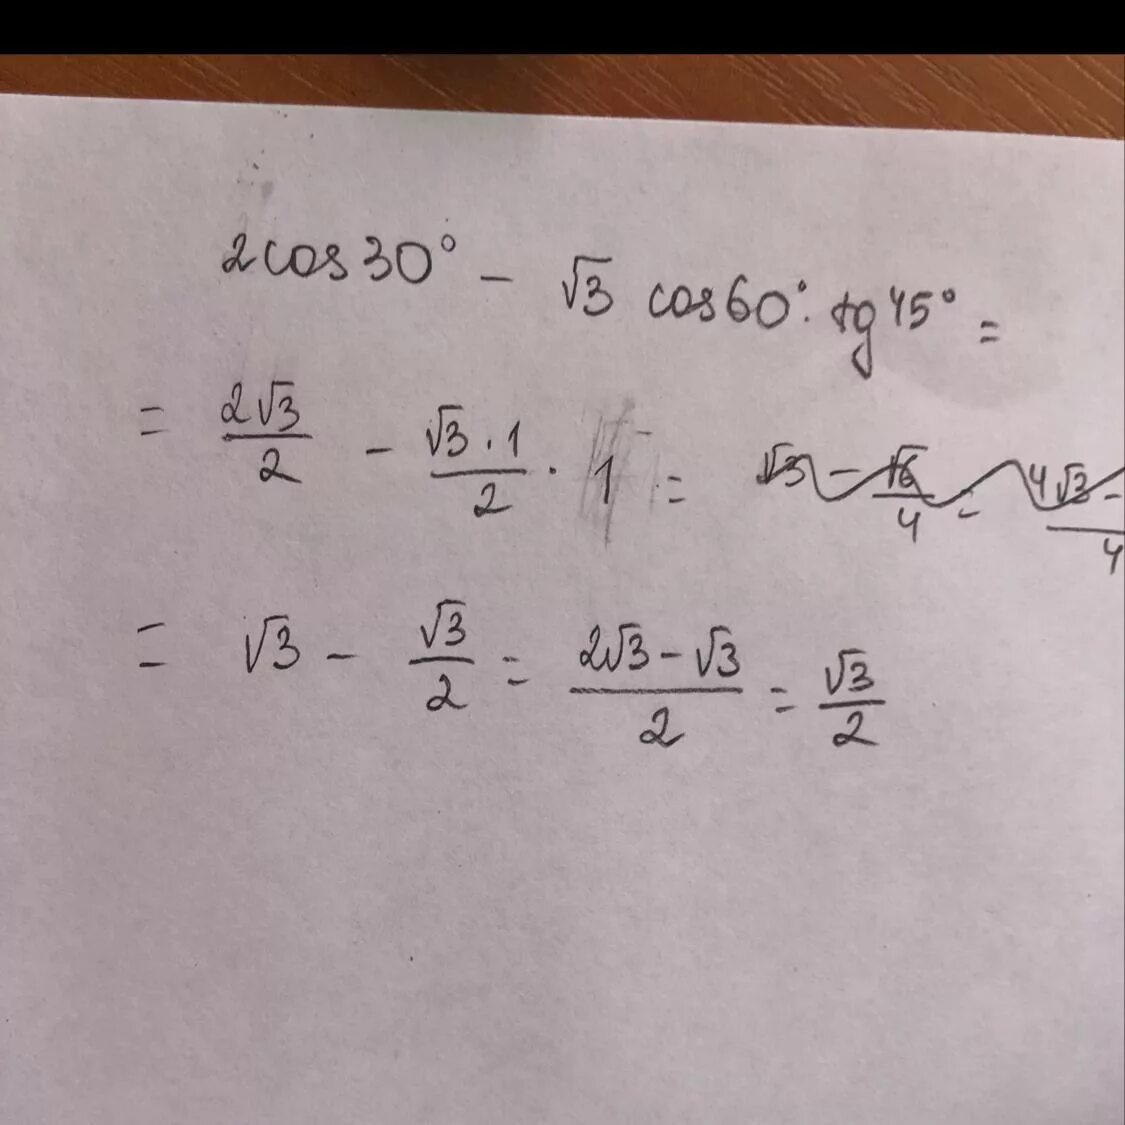 2cos30° - √3 cos60° · tg45° =
= 2√3/2 - √3·1/2 · 1 = √3 - √6/4 = 4√3 - /4
= √3 - √3/2 = 2√3-√3/2 = √3/2